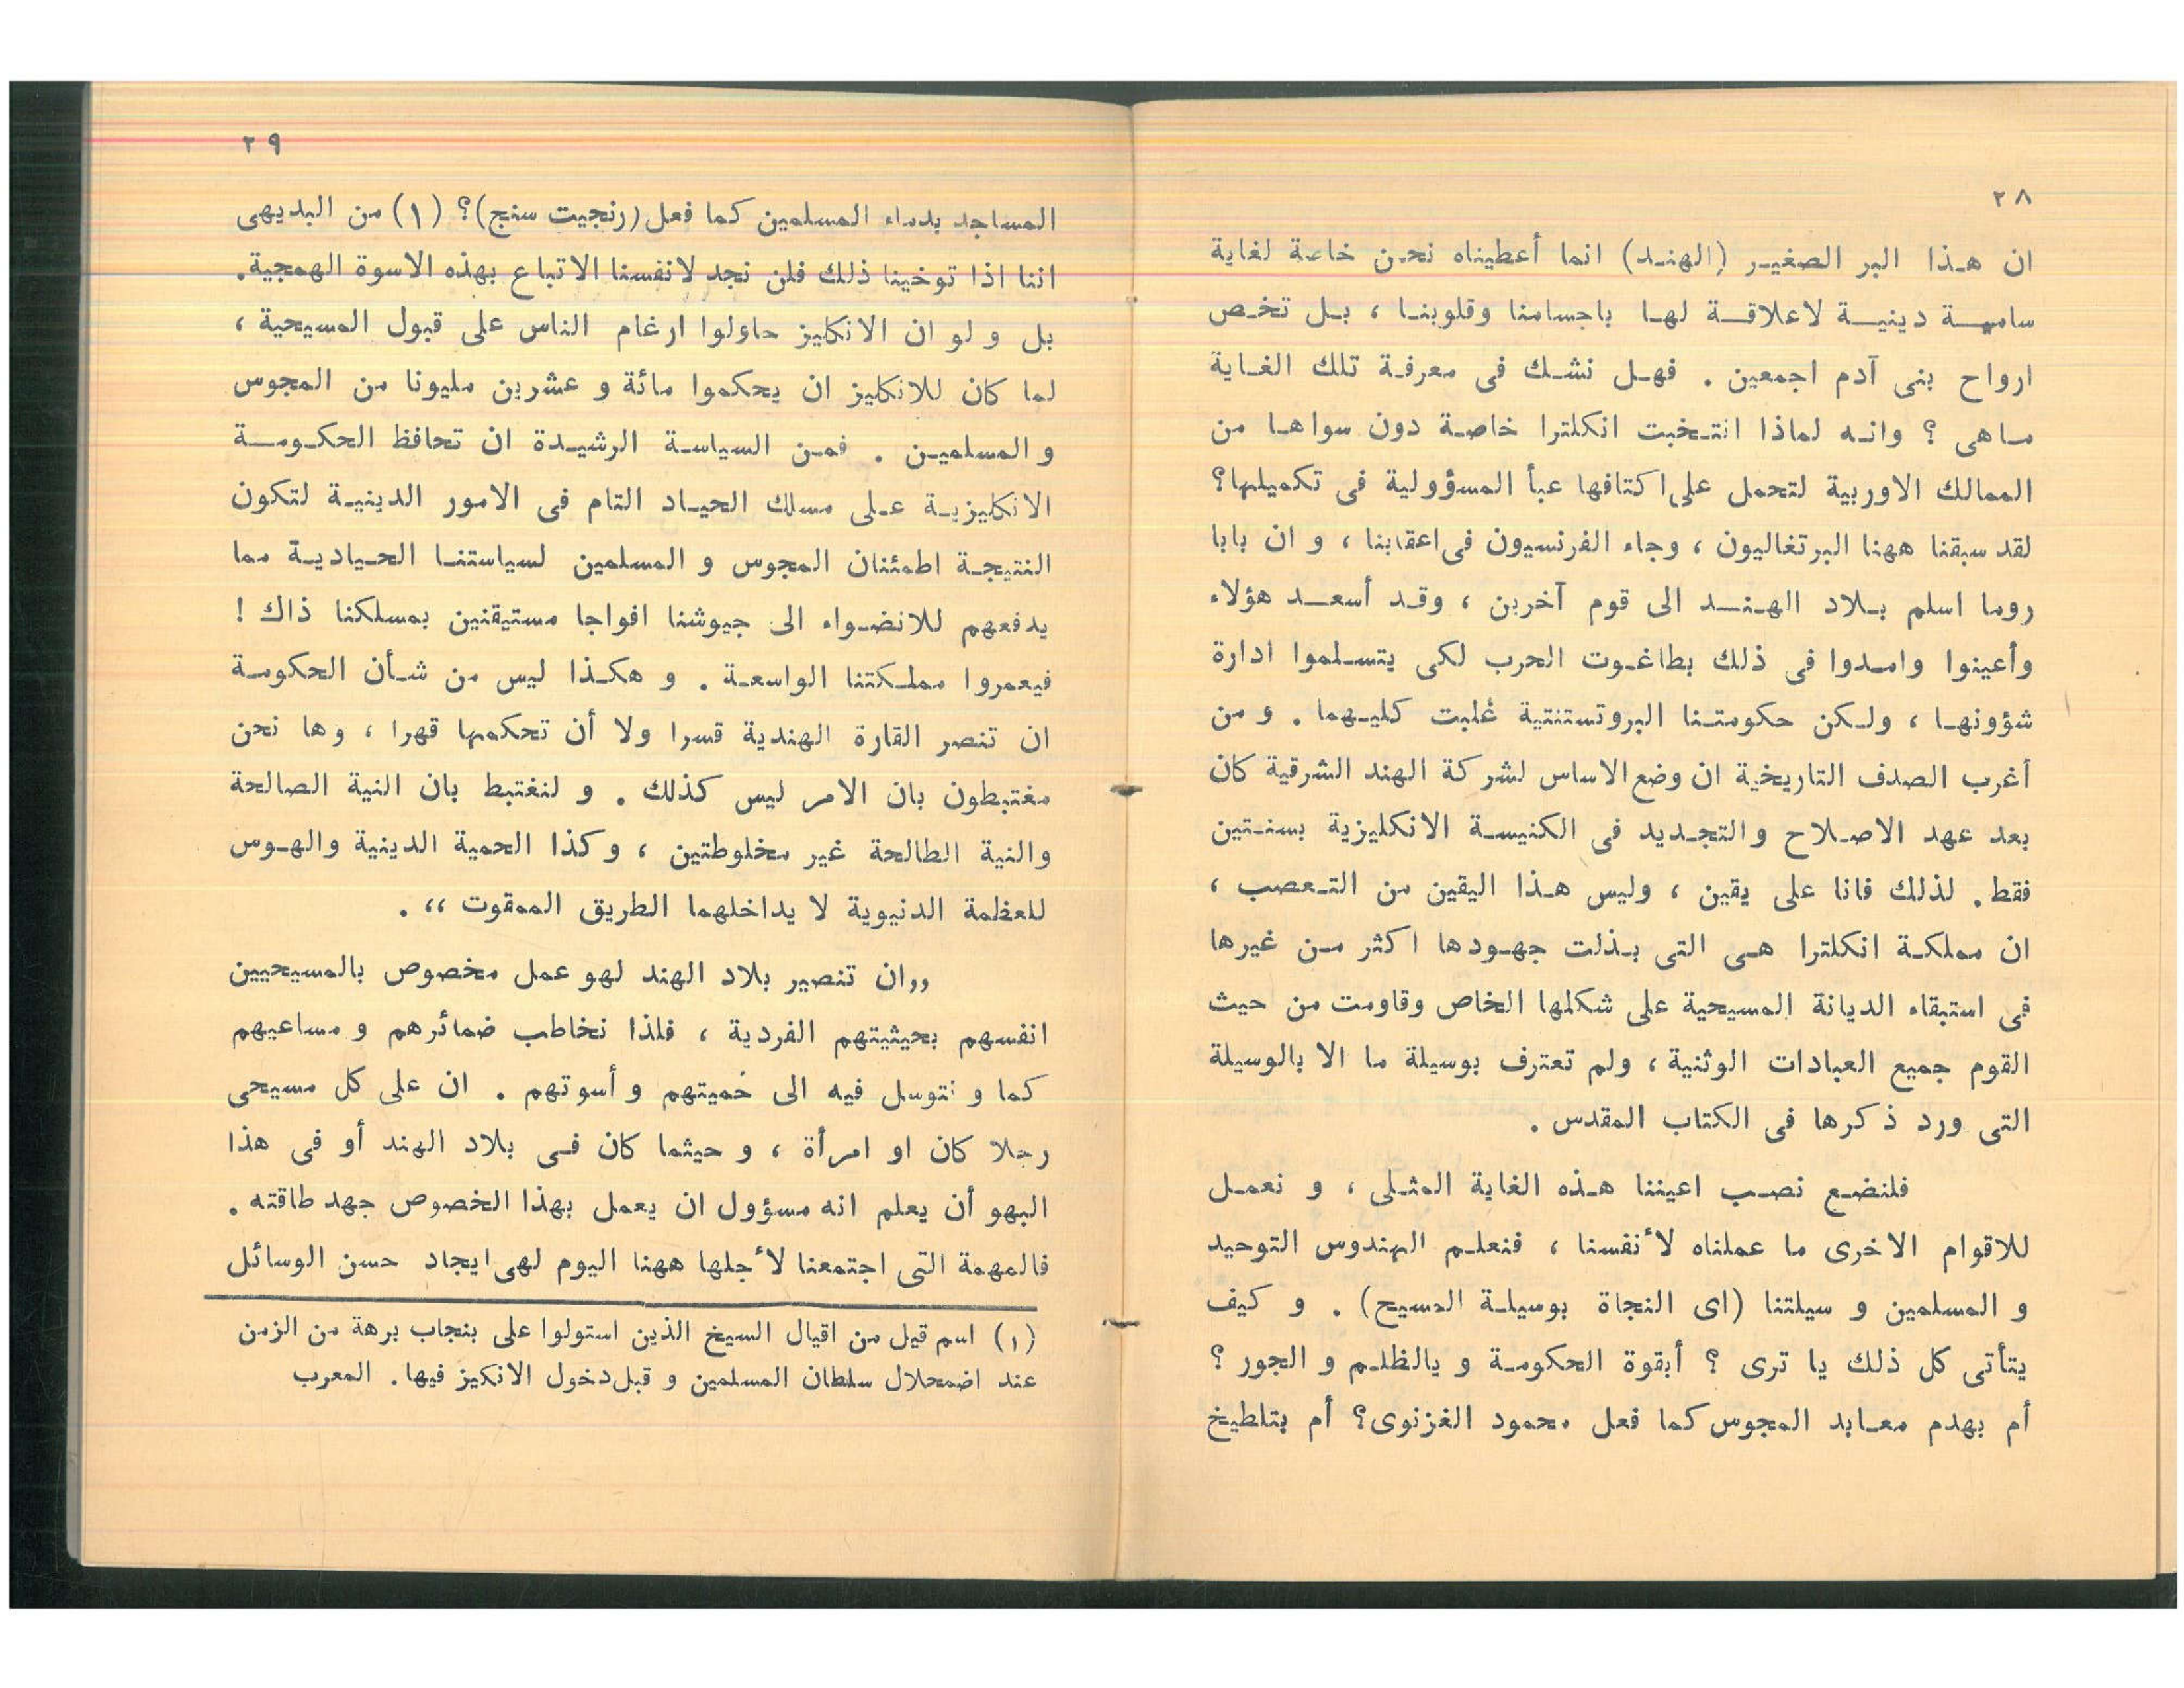 ٢٨
ان هذا البر الصغير (الهند) انما أعطيناه نحن خاصة لغاية
سامية دينية لاعلاقة لها باجسامنا وقلوبنا ، بل تخص
ارواح بنى آدم اجمعين . فهل نشك فى معرفة تلك الغاية
ماهى ؟ وانه لماذا انتخبت انكلترا خاصة دون سواها من
الممالك الاوربية لتحمل على اكتافها عبأ المسؤولية فى تكميلها؟
لقد سبقنا ههنا البرتغاليون ، وجاء الفرنسيون فى اعقابنا ، و ان بابا
روما اسلم بلاد الهند الى قوم آخرين ، وقد أسعد هؤلاء
وأعينوا وامدوا فى ذلك بطاغوت الحرب لكى يتسلموا ادارة
شؤونها ، ولكن حكومتنا البروتستنتية غلبت كليهما . و من
أغرب الصدف التاريخية ان وضع الاساس لشركة الهند الشرقية كان
بعد عهد الاصلاح والتجديد فى الكنيسة الانكليزية بسنتين
فقط . لذلك فانا على يقين ، وليس هذا اليقين من التعصب ،
ان مملكة انكلترا هى التى بذلت جهودها اكثر من غيرها
فى استبقاء الديانة المسيحية على شكلها الخاص وقاومت من حيث
القوم جميع العبادات الوثنية ، ولم تعترف بوسيلة ما الا بالوسيلة
التى ورد ذكرها فى الكتاب المقدس .
فلنضع نصب اعيننا هذه الغاية المثلى ، و نعمل
للاقوام الاخرى ما عملناه لأنفسنا ، فنعلم الهندوس التوحيد
و المسلمين و سيلتنا (اى النجاة بوسيلة المسيح) . و كيف
يتأتى كل ذلك يا ترى ؟ أبقوة الحكومة و يالظلم و الجور ؟
أم بهدم معابد المجوس كما فعل محمود الغزنوى؟ أم بتلطيخ
٢٩
المساجد بدماء المسلمين كما فعل (رنجيت سنج)؟ (١) من البديهى
اننا اذا توخينا ذلك فلن نجد لانفسنا الاتباع بهذه الاسوة الهمجية.
بل و لو ان الانكليز حاولوا ارغام الناس على قبول المسيحية ،
لما كان للانكليز ان يحكموا مائة و عشرين مليونا من المجوس
و المسلمين . فمن السياسة الرشيدة ان تحافظ الحكومة
الانكليزية على مسلك الحياد التام فى الامور الدينية لتكون
النتيجة اطمئنان المجوس و المسلمين لسياستنا الحيادية مما
يدفعهم للانضواء الى جيوشنا افواجا مستيقنين بمسلكنا ذاك !
فيعمروا مملكتنا الواسعة . و هكذا ليس من شأن الحكومة
ان تنصر القارة الهندية قسرا ولا أن تحكمها قهرا ، وها نحن
مغتبطون بان الامر ليس كذلك . و لنغتبط بان النية الصالحة
والنية الطالحة غير مخلوطتين ، وكذا الحمية الدينية والهوس
للعظمة الدنيوية لا يداخلهما الطريق الممقوت ،، .
,,ان تنصير بلاد الهند لهو عمل مخصوص بالمسيحيين
انفسهم بحيثيتهم الفردية ، فلذا نخاطب ضمائرهم و مساعيهم
كما و نتوسل فيه الى حميتهم و أسوتهم . ان على كل مسيحى
رجلا كان او امرأة ، و حيثما كان فى بلاد الهند أو فى هذا
البهو أن يعلم انه مسؤول ان يعمل بهذا الخصوص جهد طاقته .
فالمهمة التى اجتمعنا لأجلها ههنا اليوم لهى ايجاد حسن الوسائل
(١) اسم قيل من اقيال السيخ الذين استولوا على بنجاب برهة من الزمن
عند اضمحلال سلطان المسلمين و قبل دخول الانكيز فيها . المعرب